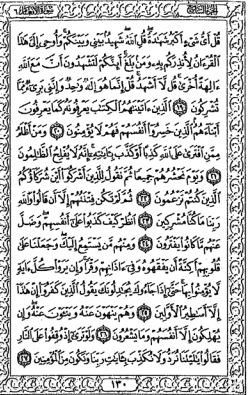 الجزء السابع سورة الأنعام
قُلْ أَىُّ شَىْءٍ أَكْبَرُ شَهَٰدَةً قُلِ ٱللَّهُ شَهِيدٌۢ بَيْنِى وَبَيْنَكُمْ وَأُوحِىَ إِلَىَّ هَٰذَا
ٱلْقُرْءَانُ لِأُنذِرَكُم بِهِۦ وَمَنۢ بَلَغَ أَئِنَّكُمْ لَتَشْهَدُونَ أَنَّ مَعَ ٱللَّهِ
ءَالِهَةً أُخْرَىٰ قُل لَّآ أَشْهَدُ قُلْ إِنَّمَا هُوَ إِلَٰهٌ وَٰحِدٌ وَإِنَّنِى بَرِىٓءٌ مِّمَّا
تُشْرِكُونَ ١٩ ٱلَّذِينَ ءَاتَيْنَٰهُمُ ٱلْكِتَٰبَ يَعْرِفُونَهُۥ كَمَا يَعْرِفُونَ
أَبْنَآءَهُمُ ٱلَّذِينَ خَسِرُوٓا۟ أَنفُسَهُمْ فَهُمْ لَا يُؤْمِنُونَ ٢٠ وَمَنْ أَظْلَمُ
مِمَّنِ ٱفْتَرَىٰ عَلَى ٱللَّهِ كَذِبًا أَوْ كَذَّبَ بِـَٔايَٰتِهِۦٓ إِنَّهُۥ لَا يُفْلِحُ ٱلظَّٰلِمُونَ
٢١ وَيَوْمَ نَحْشُرُهُمْ جَمِيعًا ثُمَّ نَقُولُ لِلَّذِينَ أَشْرَكُوٓا۟ أَيْنَ شُرَكَآؤُكُمُ
ٱلَّذِينَ كُنتُمْ تَزْعُمُونَ ٢٢ ثُمَّ لَمْ تَكُن فِتْنَتُهُمْ إِلَّآ أَن قَالُوا۟ وَٱللَّهِ
رَبِّنَا مَا كُنَّا مُشْرِكِينَ ٢٣ ٱنظُرْ كَيْفَ كَذَبُوا۟ عَلَىٰٓ أَنفُسِهِمْ وَضَلَّ
عَنْهُم مَّا كَانُوا۟ يَفْتَرُونَ ٢٤ وَمِنْهُم مَّن يَسْتَمِعُ إِلَيْكَ وَجَعَلْنَا عَلَىٰ
قُلُوبِهِمْ أَكِنَّةً أَن يَفْقَهُوهُ وَفِىٓ ءَاذَانِهِمْ وَقْرًا وَإِن يَرَوْا۟ كُلَّ ءَايَةٍ
لَّا يُؤْمِنُوا۟ بِهَا حَتَّىٰٓ إِذَا جَآءُوكَ يُجَٰدِلُونَكَ يَقُولُ ٱلَّذِينَ كَفَرُوٓا۟ إِنْ هَٰذَآ
إِلَّآ أَسَٰطِيرُ ٱلْأَوَّلِينَ ٢٥ وَهُمْ يَنْهَوْنَ عَنْهُ وَيَنْـَٔوْنَ عَنْهُ وَإِن
يُهْلِكُونَ إِلَّآ أَنفُسَهُمْ وَمَا يَشْعُرُونَ ٢٦ وَلَوْ تَرَىٰٓ إِذْ وُقِفُوا۟ عَلَى ٱلنَّارِ
فَقَالُوا۟ يَٰلَيْتَنَا نُرَدُّ وَلَا نُكَذِّبَ بِـَٔايَٰتِ رَبِّنَا وَنَكُونَ مِنَ ٱلْمُؤْمِنِينَ ٢٧
١٣٠